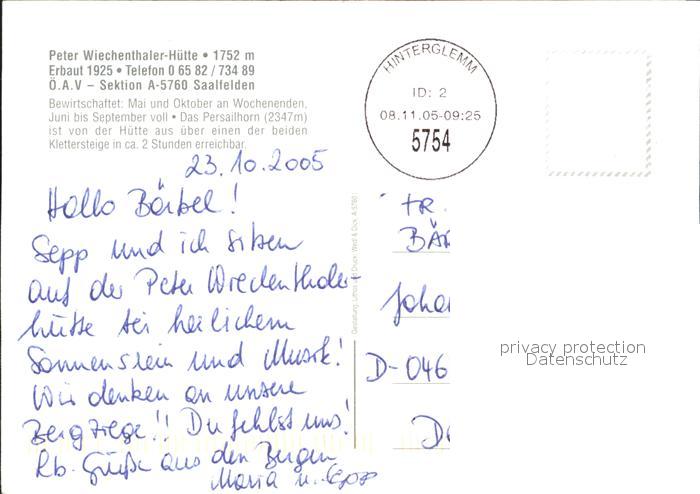 Peter Wiechenthaler-Hütte • 1752 m
Erbaut 1925 • Telefon 0 65 82 / 734 89
Ö.A.V – Sektion A-5760 Saalfelden
Bewirtschaftet: Mai und Oktober an Wochenenden,
Juni bis September voll • Das Persailhorn (2347m)
ist von der Hütte aus über einen der beiden
Klettersteige in ca. 2 Stunden erreichbar.
HINTERGLEMM
ID: 2
08.11.05-09:25
5754
23.10.2005
Hallo Bärbel!
Sepp und ich sitzen
auf der Peter Wiechenthaler-
hütte bei herrlichem
Sonnenschein und Musik!
Wir denken an unsere
Bergziege!! Du fehlst uns!
Lb. Grüße aus den Bergen
Maria u. Sepp
Fr.
BÄR
Joha
D-046
privacy protection
Datenschutz